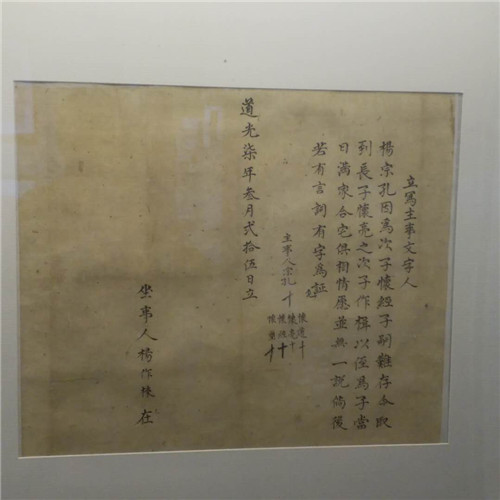 立寫主事文字人
楊宗孔因為次子懷經子嗣難存今取
到長子懷亮之次子作楫以侄為子當
日滿家合宅俱相情愿並無一説倘後
若有言訓有字為証
主事人宗孔十
懷遠十
懷亮十
懷經十
懷業十
道光柒年叁月弍拾伍日立
坐事人楊作棟在